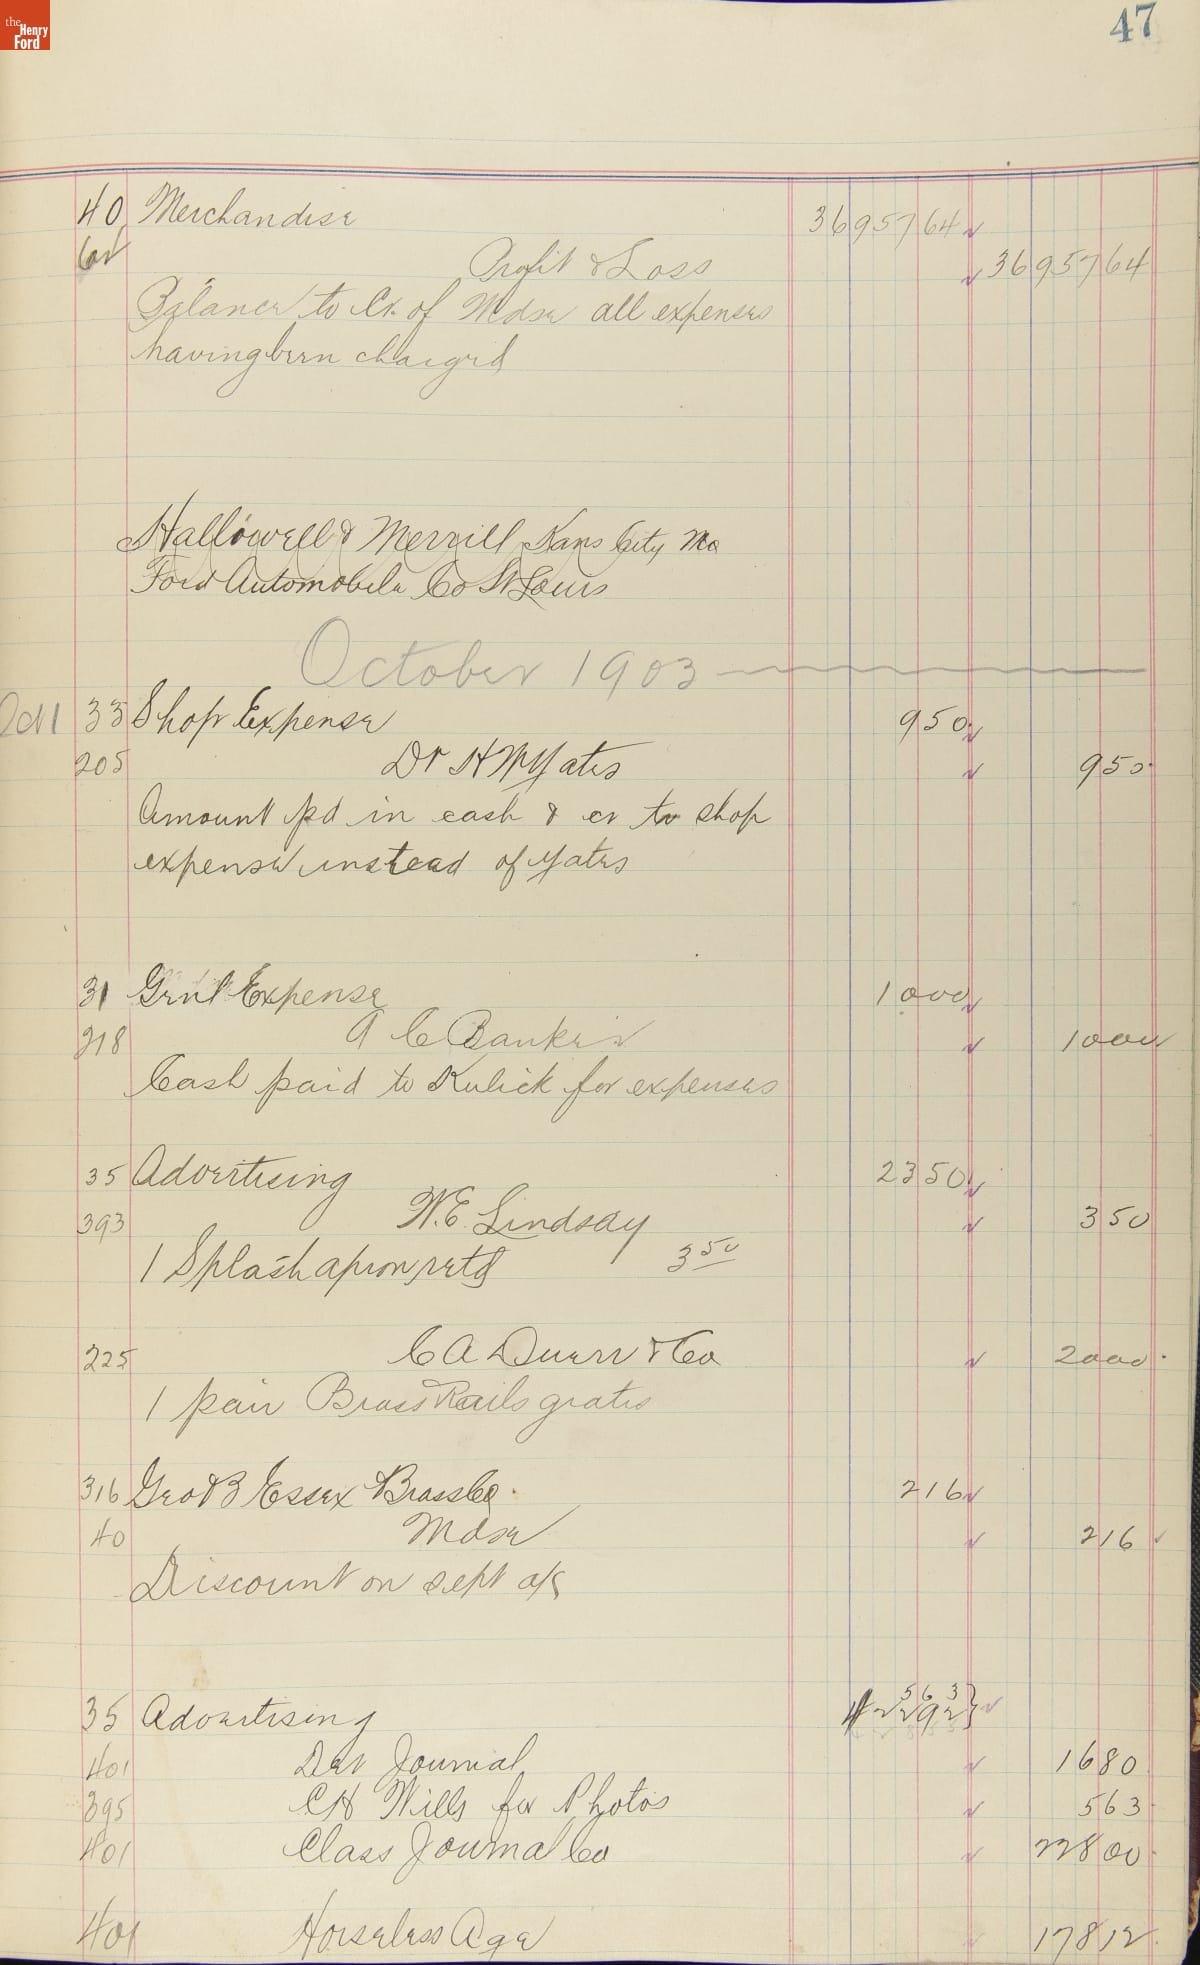 the Henry Ford
47
40 Merchandise 36957 64
Profit & Loss 36957 64
Balance to Cr. of Mdse all expenses
having been charged
Hallowell & Merrill Kans City Mo
Ford Automobile Co St Louis
October 1903
Oct 1 33 Shop Expense 9 50
205 Dr H W Yates 9 50
Amount pd in cash & cr to shop
expense instead of Yates
31 Genl Expense 10 00
218 A C Banker 10 00
Cash paid to Kulick for expenses
35 Advertising 23 50
393 W.E. Lindsay 3 50
1 Splash apron retd 3 50
225 C A Duerr & Co 20 00
1 pair Brass Rails gratis
316 Geo B Essex Brass Co. 2 16
40 Mdse 2 16
Discount on Sept a/c
35 Advertising
401 Det Journal 16 80
395 C H Wills for Photos 5 63
401 Class Journal Co 228 00
401 Horseless Age 178 12